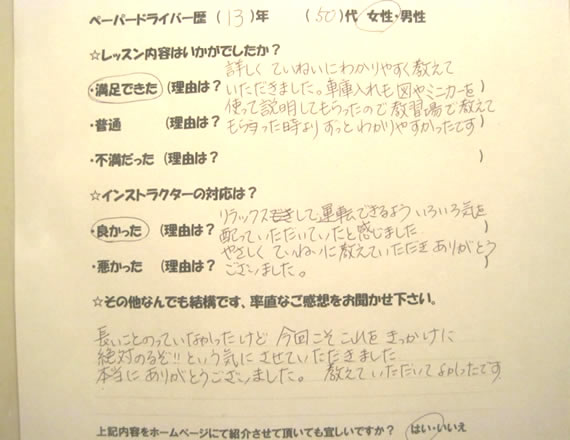 ペーパードライバー歴 （ 13 ）年 （ 50 ）代 女性・男性
☆レッスン内容はいかがでしたか？
詳しく ていねいにわかりやすく教えて
・満足できた （理由は？ いただきました。車庫入れも図やミニカーを ）
使って説明してもらったので教習場で教えて
・普通 （理由は？ もらった時より ずっとわかりやすかったです
・不満だった （理由は？ ）
☆インストラクターの対応は？
リラックスして運転できるよう いろいろ気を
・良かった （理由は？ 配っていただいていたと感じました ）
やさしく ていねいに教えていただき ありがとう
・悪かった （理由は？ ございました。 ）
☆その他なんでも結構です、率直なご感想をお聞かせ下さい。
長いことのっていなかったけど 今回こそ これを きっかけに
絶対のるぞ!! という気に させていただきました
本当に ありがとうございました。 教えていただいて よかったです
上記内容をホームページにて紹介させて頂いても宜しいですか？ はい・いいえ